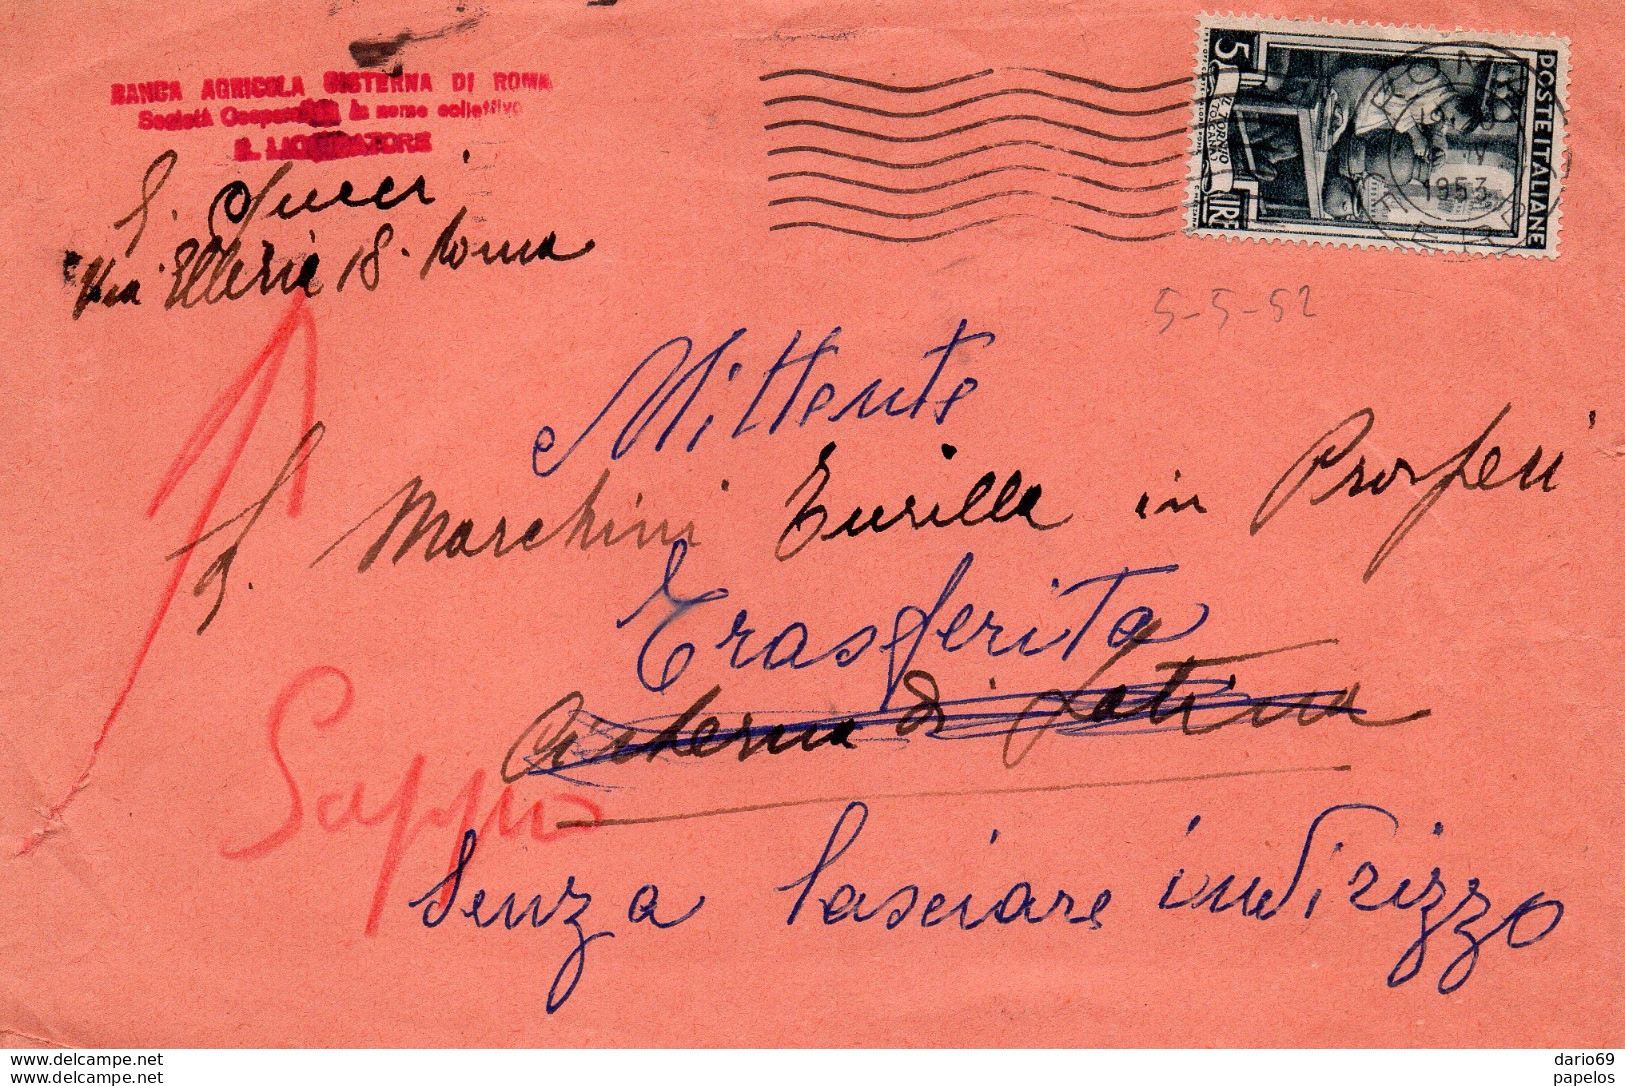 BANCA AGRICOLA CISTERNA DI ROMA
Società Cooperativa in nome collettivo
IL LIQUIDATORE
Via Ellerie 18. Roma
5 LIRE
IL TORNIO
(TOSCANA)
POSTE ITALIANE
ROMA
1953
5-5-52
Mittente
S. Marchini Eurilla in Prosperi
Trasferita
Cisterna di Latina
senza lasciare indirizzo
www.delcampe.net
www.delcampe.net
dario69
papelos